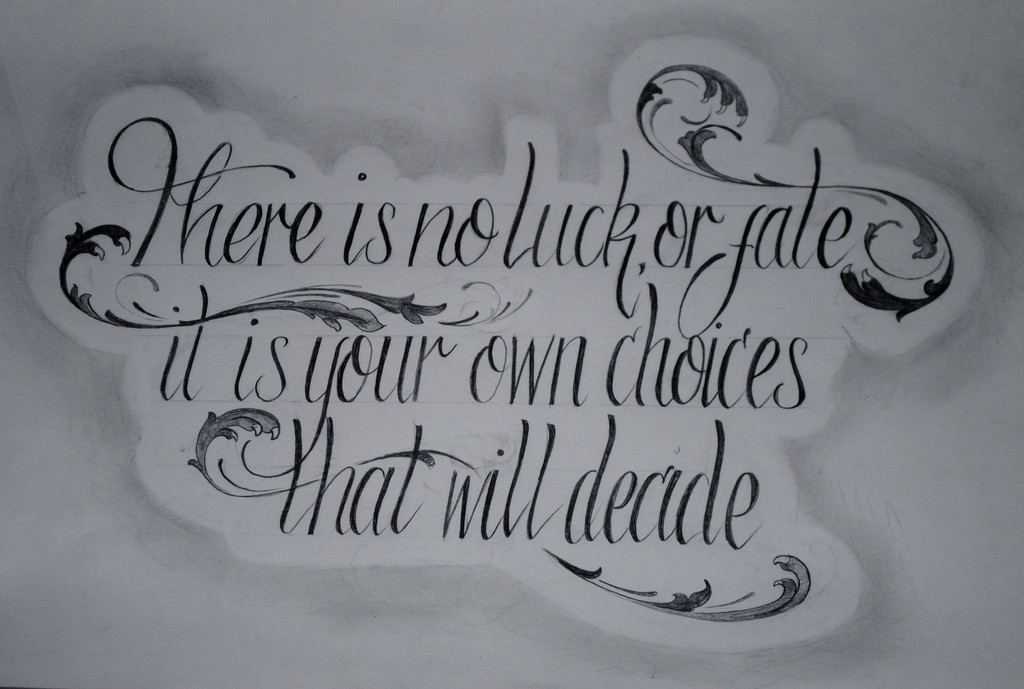 There is no luck, or fate
it is your own choices
that will decide